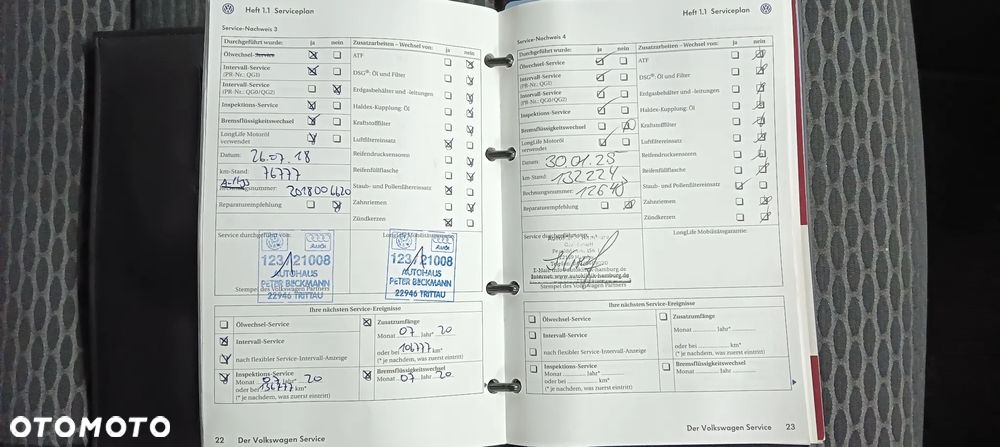 Heft 1.1 Serviceplan
Service-Nachweis 3
Durchgeführt wurde: ja nein
Ölwechsel-Service
Intervall-Service
(PR-Nr.: QG1)
Intervall-Service
(PR-Nr.: QG0/QG2)
Inspektions-Service
Bremsflüssigkeitswechsel
LongLife Motoröl
verwendet
Datum: 26.07.18
km-Stand: 76777
Reparaturempfehlung
Zusatzarbeiten – Wechsel von: ja nein
ATF
DSG®: Öl und Filter
Erdgasbehälter und -leitungen
Haldex-Kupplung: Öl
Kraftstofffilter
Luftfiltereinsatz
Reifendrucksensoren
Reifenfüllflasche
Staub- und Pollenfiltereinsatz
Zahnriemen
Zündkerzen
Service durchgeführt von:
LongLife Mobilitätsgarantie
Audi
123 21008
AUTOHAUS
PETER BECKMANN
22946 TRITTAU
Audi
123 21008
AUTOHAUS
PETER BECKMANN
22946 TRITTAU
Stempel des Volkswagen Partners
Ihre nächsten Service-Ereignisse
Ölwechsel-Service
Intervall-Service
nach flexibler Service-Intervall-Anzeige
Inspektions-Service
Monat 07 Jahr* 20
oder bei 136777 km*
(* je nachdem, was zuerst eintritt)
Zusatzumfänge
Monat 07 Jahr* 20
oder bei 106777 km*
(* je nachdem, was zuerst eintritt)
Bremsflüssigkeitswechsel
Monat 07 Jahr 20
22 Der Volkswagen Service
Heft 1.1 Serviceplan
Service-Nachweis 4
Durchgeführt wurde: ja nein
Ölwechsel-Service
Intervall-Service
(PR-Nr.: QG1)
Intervall-Service
(PR-Nr.: QG0/QG2)
Inspektions-Service
Bremsflüssigkeitswechsel
LongLife Motoröl
verwendet
Datum:
km-Stand: 132224
Rechnungsnummer: 12648
Reparaturempfehlung
Zusatzarbeiten – Wechsel von: ja nein
ATF
DSG®: Öl und Filter
Erdgasbehälter und -leitungen
Haldex-Kupplung: Öl
Kraftstofffilter
Luftfiltereinsatz
Reifendrucksensoren
Reifenfüllflasche
Staub- und Pollenfiltereinsatz
Zahnriemen
Zündkerzen
Service durchgeführt von:
LongLife Mobilitätsgarantie
Stempel des Volkswagen Partners
Ihre nächsten Service-Ereignisse
Ölwechsel-Service
Intervall-Service
nach flexibler Service-Intervall-Anzeige
Inspektions-Service
Monat Jahr*
oder bei km*
(* je nachdem, was zuerst eintritt)
Zusatzumfänge
Monat Jahr*
oder bei km*
(* je nachdem, was zuerst eintritt)
Bremsflüssigkeitswechsel
Monat Jahr
Der Volkswagen Service 23
OTOMOTO